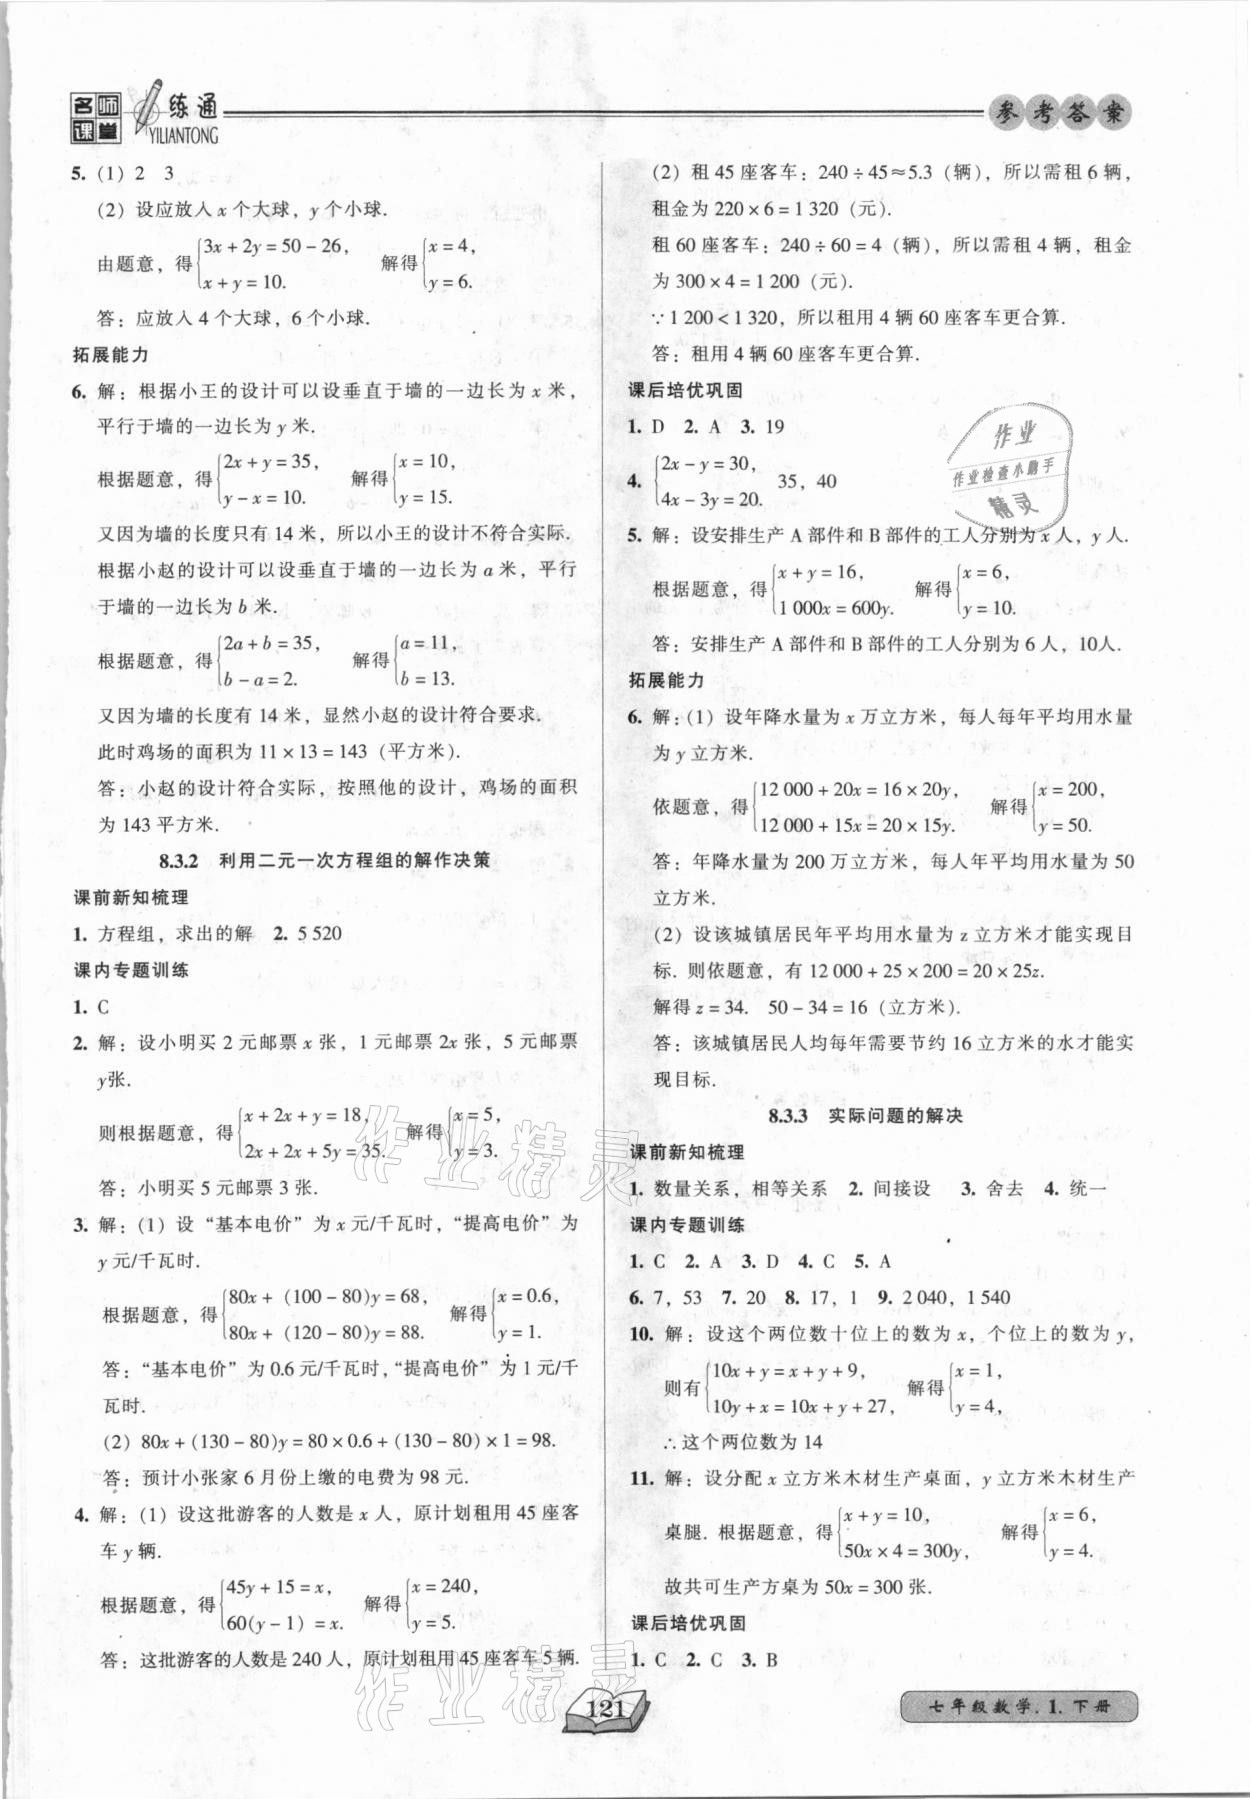 名师课堂
一练通
YILIANTONG
参考答案
5. (1) 2 3
(2) 设应放入 x 个大球，y 个小球.
由题意，得{3x+2y=50-26, x+y=10. 解得{x=4, y=6.
答：应放入 4 个大球，6 个小球.
拓展能力
6. 解：根据小王的设计可以设垂直于墙的一边长为 x 米，
平行于墙的一边长为 y 米.
根据题意，得{2x+y=35, y-x=10. 解得{x=10, y=15.
又因为墙的长度只有 14 米，所以小王的设计不符合实际.
根据小赵的设计可以设垂直于墙的一边长为 a 米，平行
于墙的一边长为 b 米.
根据题意，得{2a+b=35, b-a=2. 解得{a=11, b=13.
又因为墙的长度有 14 米，显然小赵的设计符合要求.
此时鸡场的面积为 11×13=143（平方米）.
答：小赵的设计符合实际，按照他的设计，鸡场的面积
为 143 平方米.
8.3.2 利用二元一次方程组的解作决策
课前新知梳理
1. 方程组，求出的解 2. 5 520
课内专题训练
1. C
2. 解：设小明买 2 元邮票 x 张，1 元邮票 2x 张，5 元邮票
y张.
则根据题意，得{x+2x+y=18, 2x+2x+5y=35. 解得{x=5, y=3.
答：小明买 5 元邮票 3 张.
3. 解：(1) 设“基本电价”为 x 元/千瓦时，“提高电价”为
y 元/千瓦时.
根据题意，得{80x+(100-80)y=68, 80x+(120-80)y=88. 解得{x=0.6, y=1.
答：“基本电价”为 0.6 元/千瓦时，“提高电价”为 1 元/千
瓦时.
(2) 80x+(130-80)y=80×0.6+(130-80)×1=98.
答：预计小张家 6 月份上缴的电费为 98 元.
4. 解：(1) 设这批游客的人数是 x 人，原计划租用 45 座客
车 y 辆.
根据题意，得{45y+15=x, 60(y-1)=x. 解得{x=240, y=5.
答：这批游客的人数是 240 人，原计划租用 45 座客车 5 辆.
(2) 租 45 座客车：240÷45≈5.3（辆），所以需租 6 辆，
租金为 220×6=1 320（元）.
租 60 座客车：240÷60=4（辆），所以需租 4 辆，租金
为 300×4=1 200（元）.
∵1 200<1 320，所以租用 4 辆 60 座客车更合算.
答：租用 4 辆 60 座客车更合算.
课后培优巩固
1. D 2. A 3. 19
4. {2x-y=30, 4x-3y=20. 35，40
5. 解：设安排生产 A 部件和 B 部件的工人分别为 x 人，y 人.
根据题意，得{x+y=16, 1 000x=600y. 解得{x=6, y=10.
答：安排生产 A 部件和 B 部件的工人分别为 6 人，10人.
拓展能力
6. 解：(1) 设年降水量为 x 万立方米，每人每年平均用水量
为 y 立方米.
依题意，得{12 000+20x=16×20y, 12 000+15x=20×15y. 解得{x=200, y=50.
答：年降水量为 200 万立方米，每人年平均用水量为 50
立方米.
(2) 设该城镇居民年平均用水量为 z 立方米才能实现目
标. 则依题意，有 12 000+25×200=20×25z.
解得 z=34. 50-34=16（立方米）.
答：该城镇居民人均每年需要节约 16 立方米的水才能实
现目标.
8.3.3 实际问题的解决
课前新知梳理
1. 数量关系，相等关系 2. 间接设 3. 舍去 4. 统一
课内专题训练
1. C 2. A 3. D 4. C 5. A
6. 7，53 7. 20 8. 17，1 9. 2 040，1 540
10. 解：设这个两位数十位上的数为 x，个位上的数为 y，
则有{10x+y=x+y+9, 10y+x=10x+y+27, 解得{x=1, y=4,
∴这个两位数为 14
11. 解：设分配 x 立方米木材生产桌面，y 立方米木材生产
桌腿. 根据题意，得{x+y=10, 50x×4=300y, 解得{x=6, y=4.
故共可生产方桌为 50x=300 张.
课后培优巩固
1. C 2. C 3. B
作业
作业检查小助手
精灵
作业精灵
作业精灵
121
七年级数学. 1. 下册